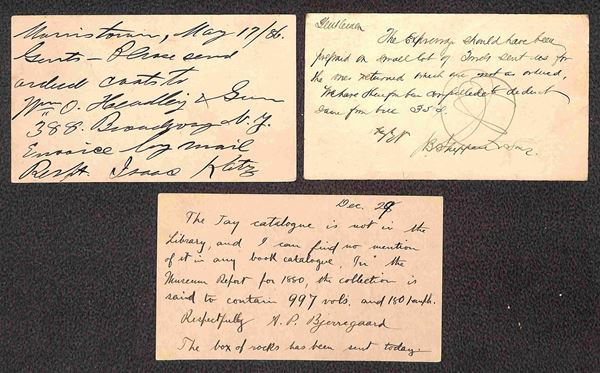 Morristown, May 17/86.
Gents – Please send
ordered coats to
Wm O. Headley &
"388. Broadway N.Y.
Envoice by mail
Respt. Isaac Klitz
Gentlemen
The Expressage should have been
prepaid on small lot of goods sent us for
the ones returned which are not as ordered,
We have therefore been compelled to deduct
same from bill 35¢.
J B Sheppard & Sons.
Dec. 29
The Jay catalogue is not in the
Library, and I can find no mention
of it in any book catalogue. In the
Museum Report for 1880, the collection is
said to contain 997 vols. and 180 pamph.
Respectfully A. P. Bjerregaard
The box of rocks has been sent today.